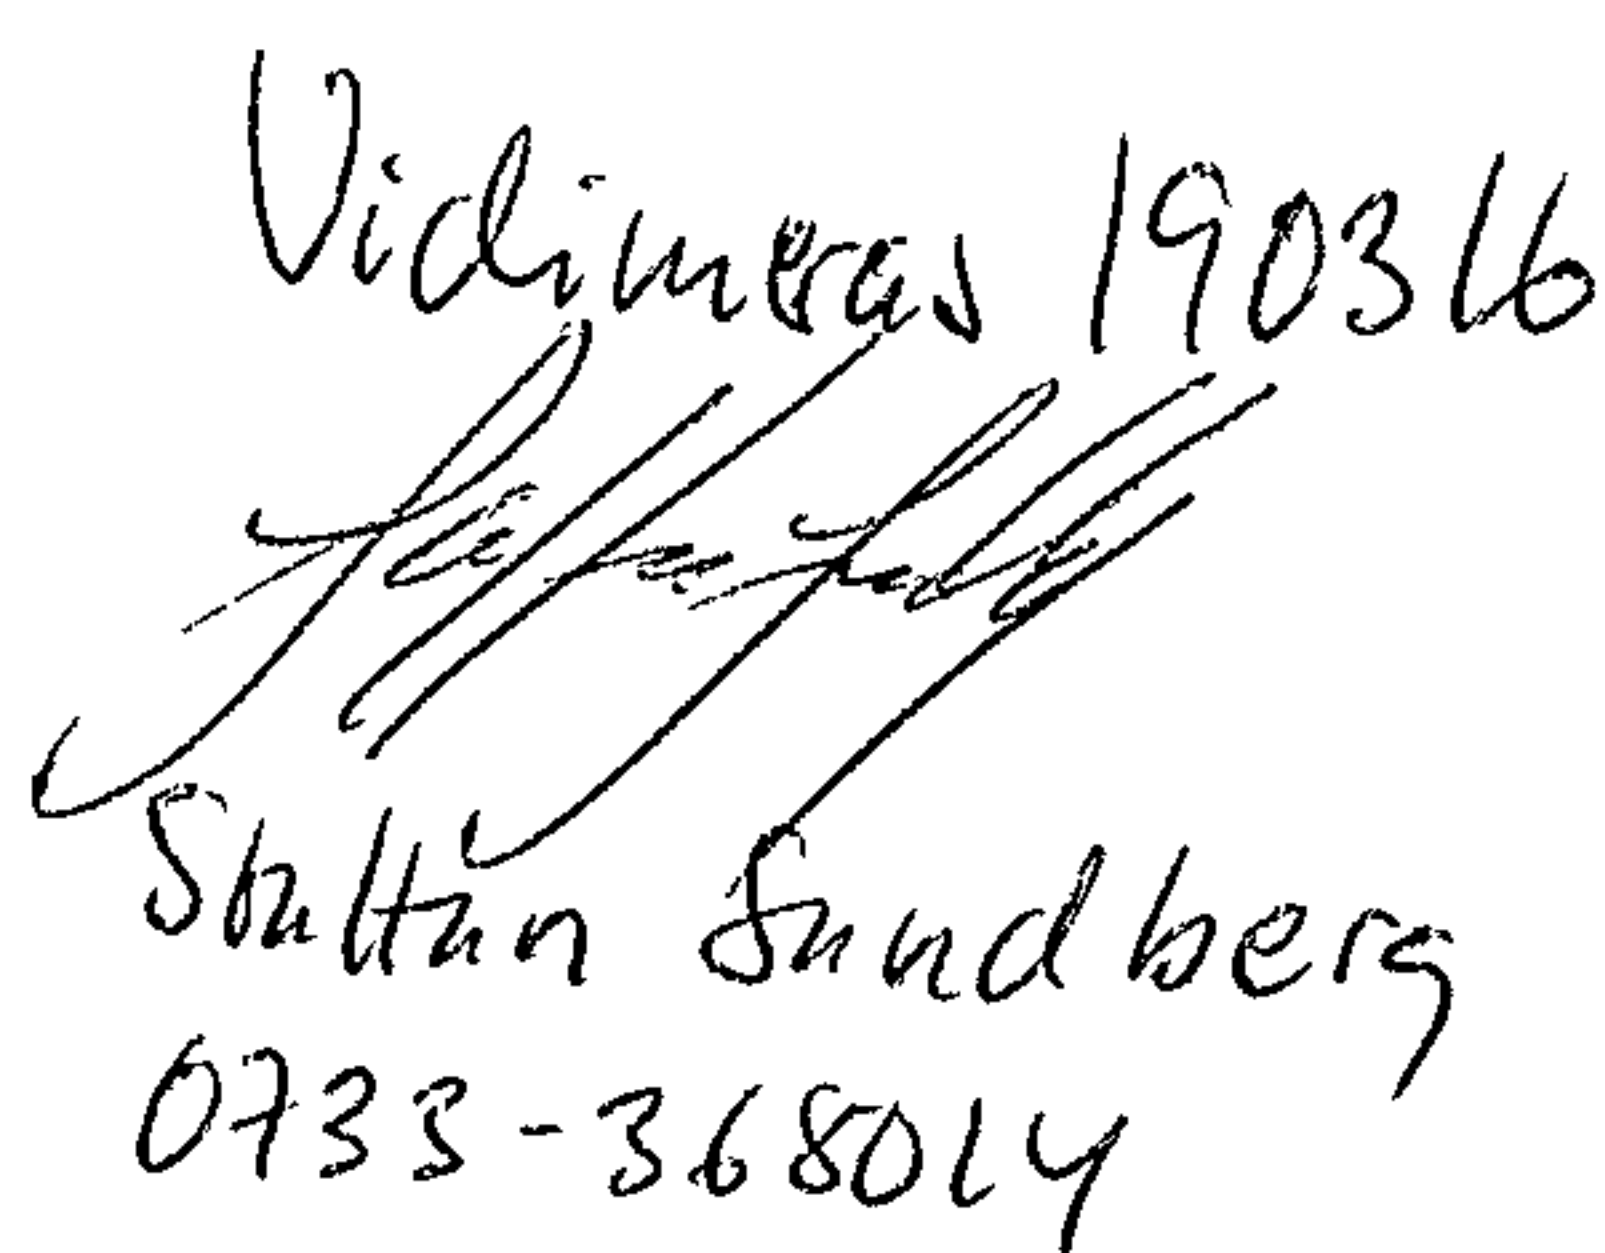 Vidimeras 190316
Staffan Sundberg
0733-368014